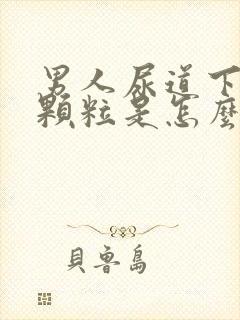 男人尿道下
顆粒是怎麼
貝魯島